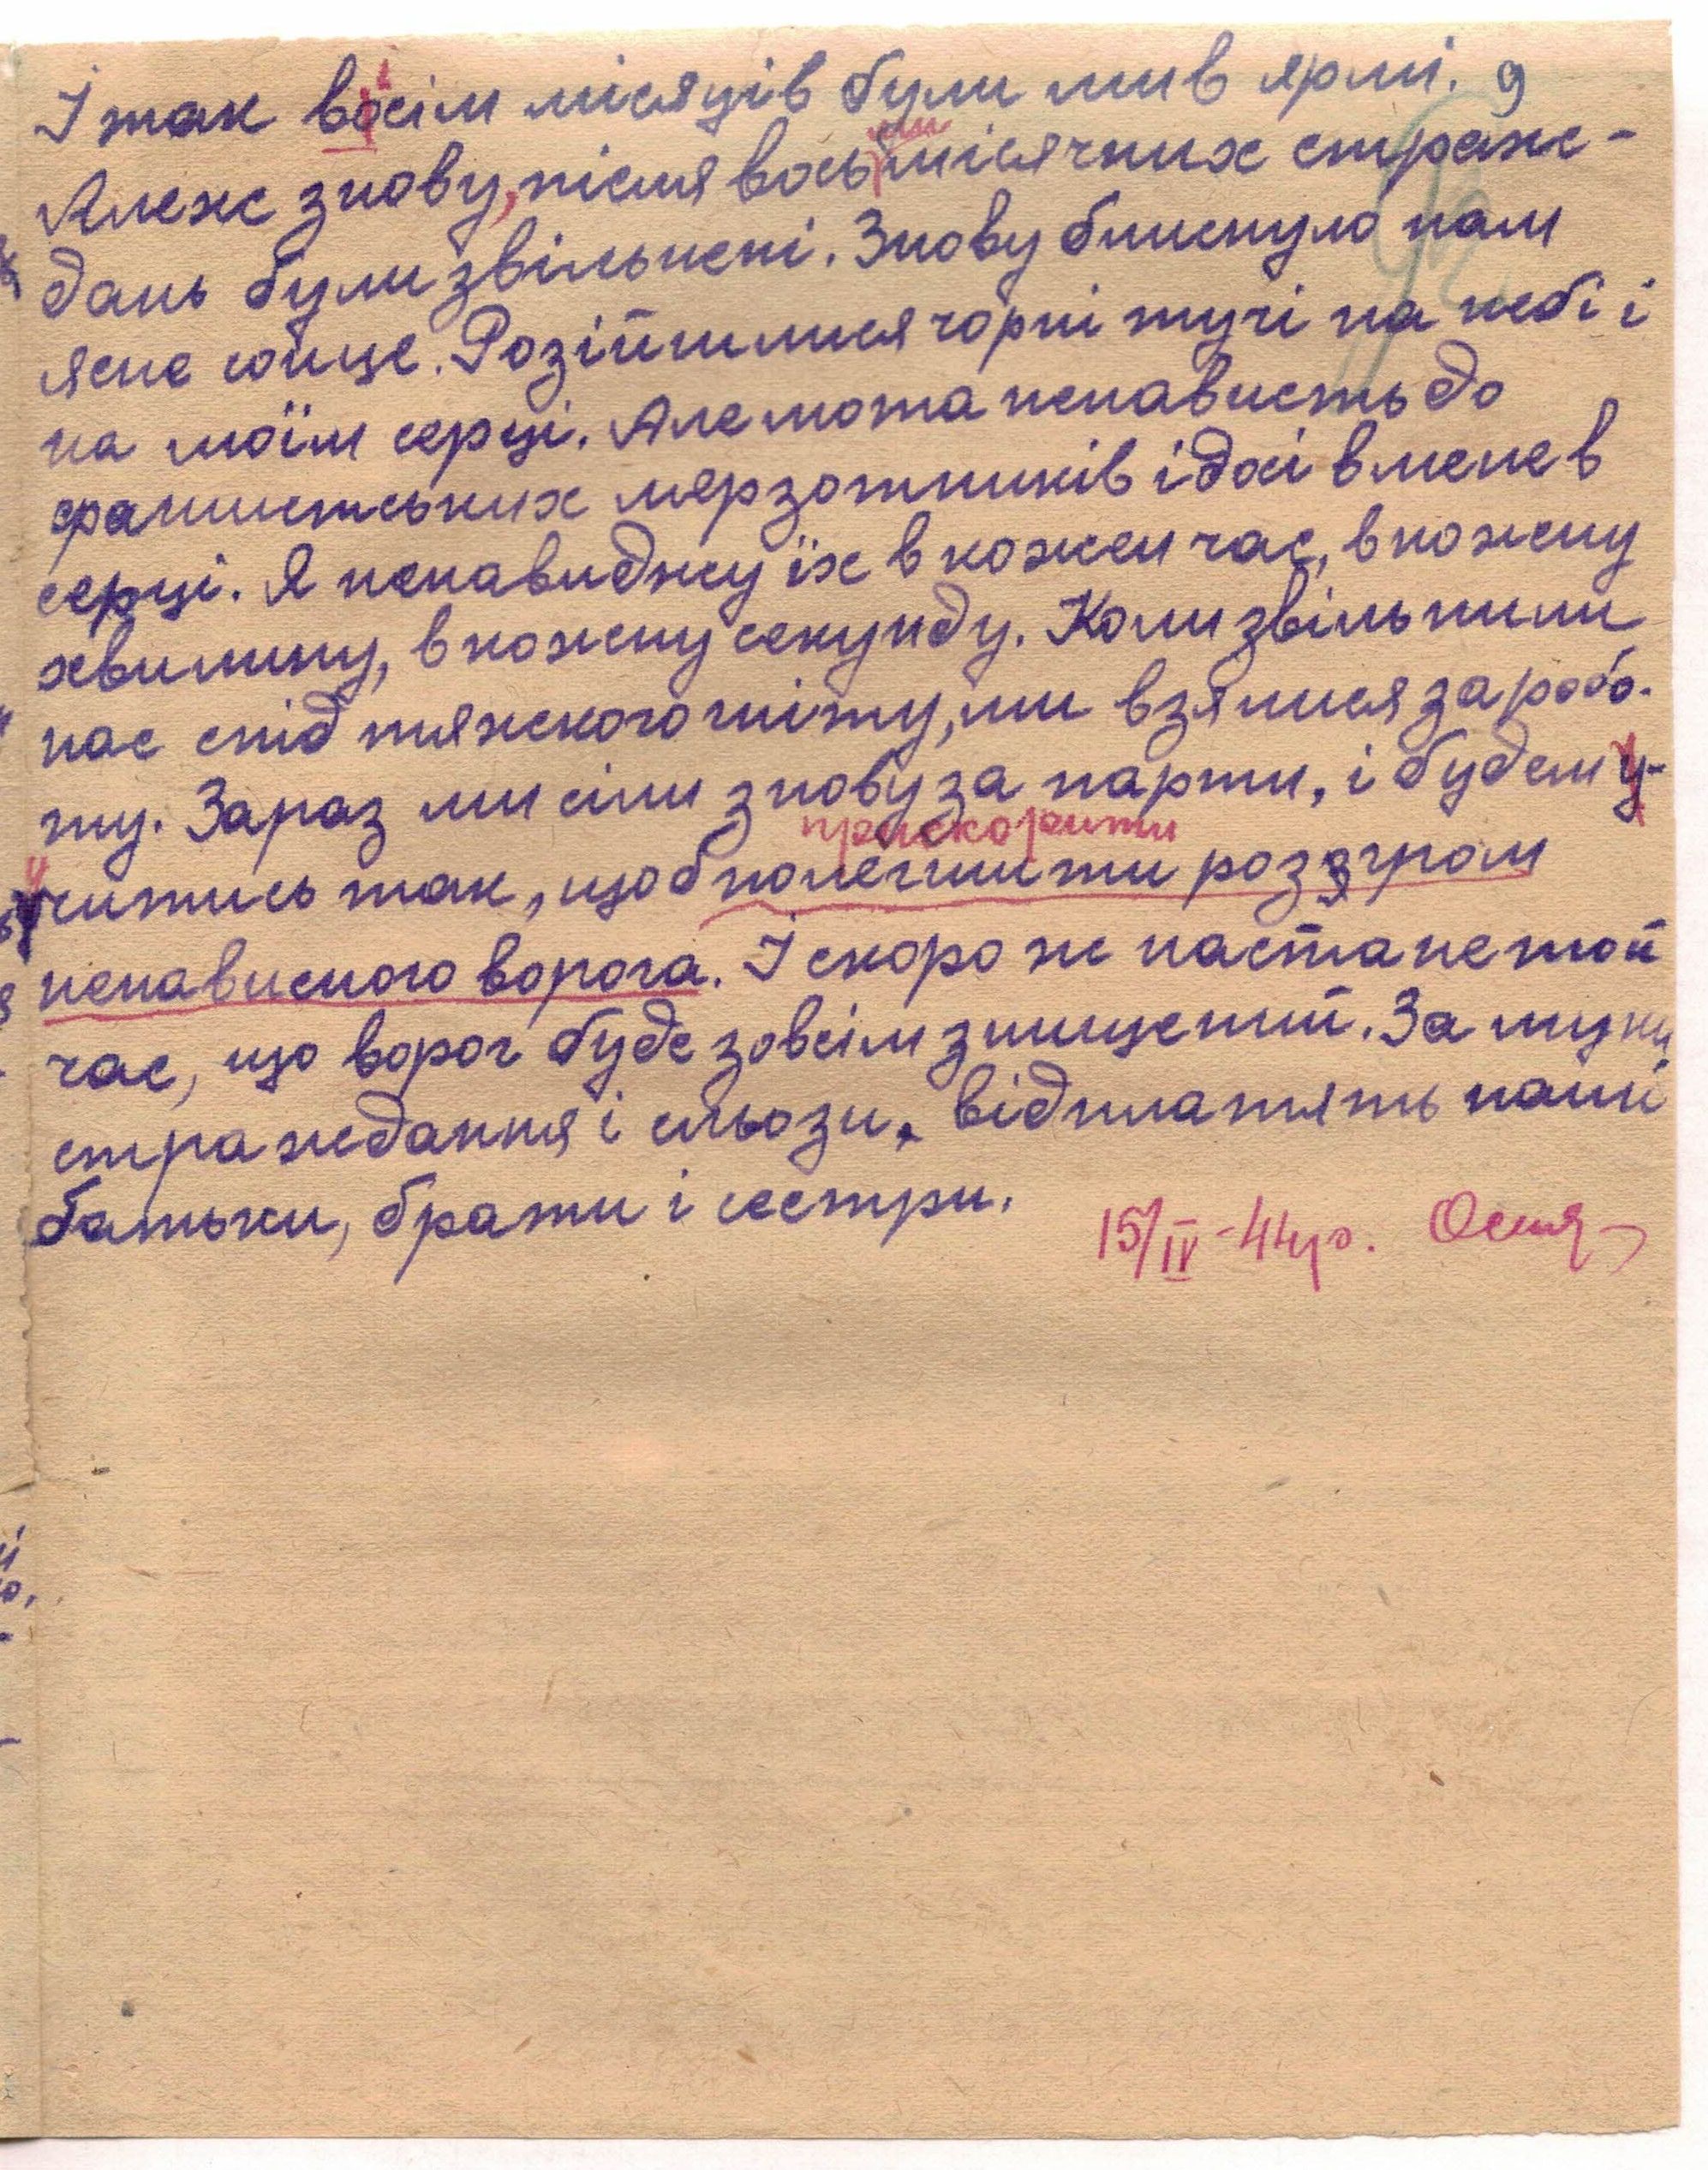 І так восім місяців були ми в ярмі. 9
Алеж знову, після восьмимісячних страж-
дань були звільнені. Знову блиснуло нам
ясне сонце. Розійшлися чорні тучі на небі і
на моїм серці. Але люта ненависть до
фашистських мерзотників і досі в мене в
серці. Я ненавиджу їх в кожен час, в кожну
хвилину, в кожну секунду. Коли звільнили
нас спід тяжкого гніту, ми взялися за робо-
ту. Зараз ми сіли знову за парти, і будем у-
прискорити
читись так, щоб полегшити роззгром
ненависного ворога. І скоро ж настане той
час, що ворог буде зовсім знищений. За муки
страждання і сльози, відплатять наші
батьки, брати і сестри.
15/IV-44р.